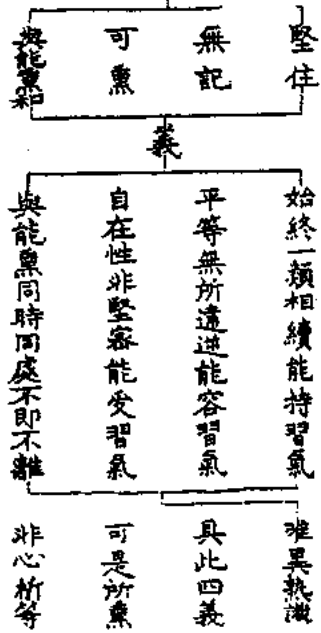 堅住
無記
可熏
與能熏和
義
始終一類相續能持習氣
平等無所違逆能容習氣
自在性非堅密能受習氣
與能熏同時同處不即不離
唯異熟識
具此四義
可是所熏
非心所等